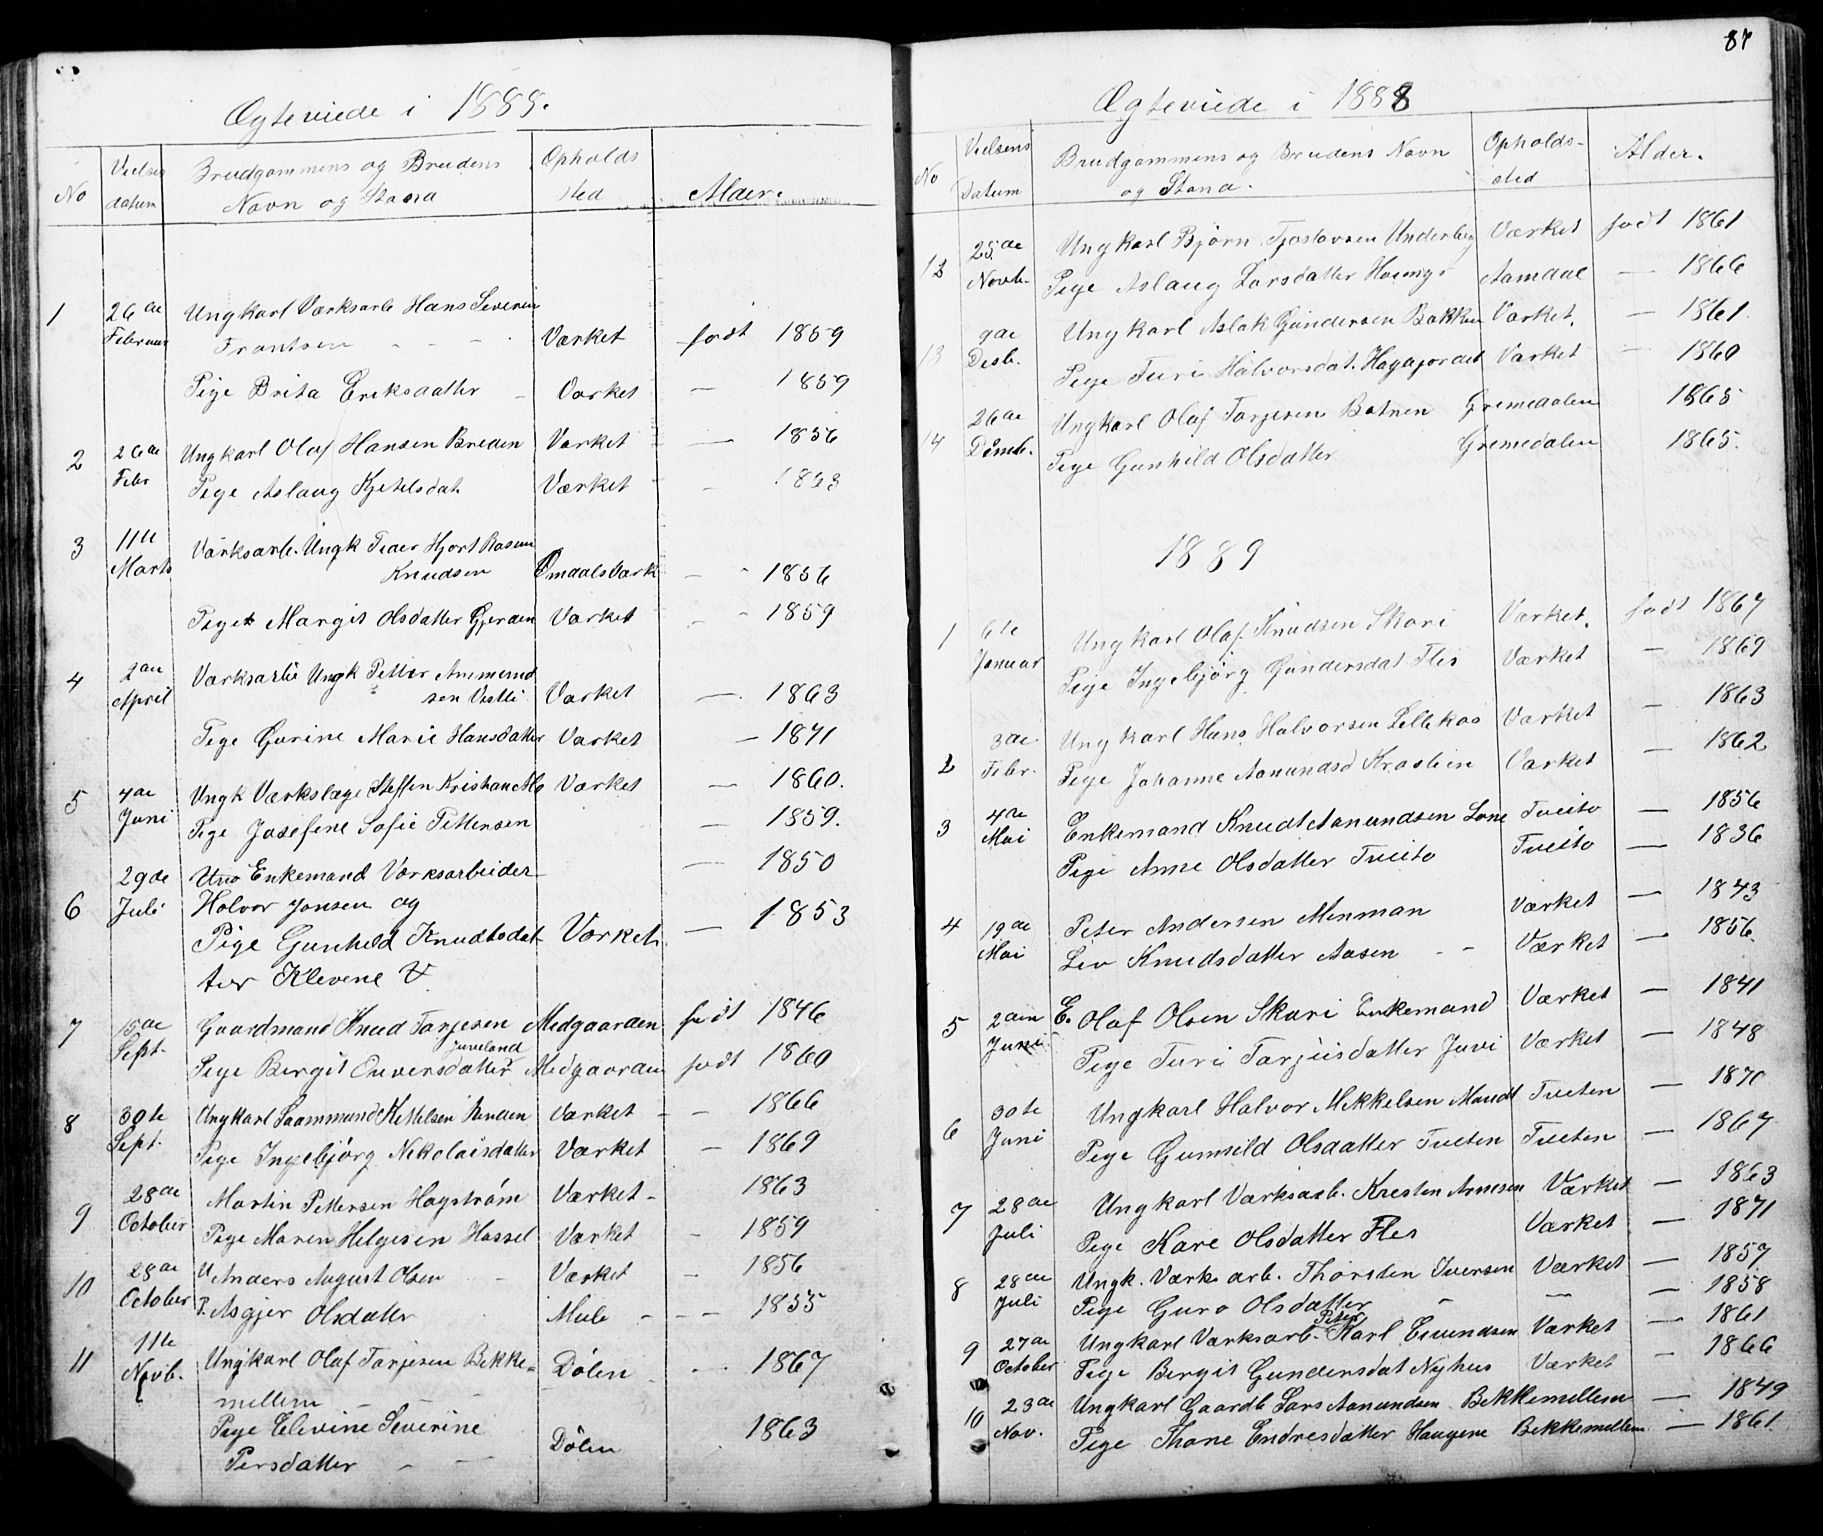 Ægteviede i 1888.
No
Vielses datum
Brudgommens og Brudens Navn og Stand
Opholds sted
Alder.
1 26de Februar Ungkarl Værksarb Hans Severin
Frantsen - - - Værket født 1859
Pige Brita Eriksdatter - Værket — 1859
2 26de Febr Ungkarl Olaf Hansen Breden Værket — 1856
Pige Aslaug Kjetelsdat. Værket - 1863
3 11te Marts Værksarb. Ungk Peder Hjort Rasm
Knudsen OmdalsVærk - - 1856
Pige Margit Olsdatter Gjerden Værket - 1859
4 2den April Værksarb Ungk Petter Ammund
sen Vestli Værket — 1863
Pige Gurine Marie Hansdatter Værket — 1871
5 4de Juni Ungk Værkslæge Steffen Kristian Værket — 1860.
Pige Josefine Sofie Pettersen — 1859.
6 29de Juli Enkemand Værksarbeider — 1850
Halvor Jonsen og
Pige Gunhild Knudtsdat Værket. — 1853
ter Klevene V
7 15de Sept. Gaardmand Knud Tarjesen Midgaarden født 1846
Juveland
Pige Bergit Enversdatter Midgaarden født 1860
8 30te Sept. Ungkarl Saammund Kittelsen Værket - - 1866
Pige Ingebjørg Nikolaisdatter Værket - 1869
9 28de October Martin Pettersen Hagstrøm Værket - 1863
Pige Maren Helgesen Hassel Værket - 1859
10 28de October U Anders August Olsen - Værket - 1856
P. Asgjer Olsdatter Mule - - - 1855
11 11te Novb. Ungkarl Olaf Tarjesen Bekke= Dølen - - 1867
mellem - - -
Pige Elevine Severine
Persdatter - - - Dølen 1863
87
Ægteviede i 1888
No
Vielsens Datum
Brudgommens og Brudens Navn og Stand.
Opholds- sted
Alder.
12 25de Novb. Ungkarl Bjørn Tjostovsen Underberg Værket født 1861
Pige Aslaug Larsdatter Amdal — 1866
13 9de Desb. Ungkarl Aslak Gundersen Bakken Værket. — 1861
Pige Turi Halvorsdat. Hagajordet Værket — 1860
14 26de Desmb. Ungkarl Olaf Tarjesen Botnen Grimedalen 1865
Pige Gunhild Olsdatter Grimedalen 1865.
1889
1 6te Januar Ungkarl Olaf Knudsen Skori Værket. født 1867
Pige Ingebjørg Gundersdat Fles Værket — 1869
2 3de Febr. Ungkarl Hans Halvorsen Lillekås Værket — 1863
Pige Johanne Aanundsd Kråstein Værket — 1862
3 4de Mai Enkemand Knudt Aanundsen Lone Tveito — 1856
Pige Anne Olsdatter Tveito Tveito — 1836
4 19de Mai Peter Andersen Minman Værket — 1843
Liv Knudsdatter Aasen - - Værket — 1856.
5 2den Juni E. Olaf Olsen Skori Enkemand Værket — 1841
Pige Turi Tarjeisdatter Juvi Værket — 1848
6 30te Juni Ungkarl Halvor Mikkelsen Mandt Tveiten — 1870
Pige Gunhild Olsdatter Tveten Tveten — 1867
7 28de Juli Ungkarl Værksarb. Kresten Arnesen Værket — 1863
Pige Kare Olsdatter Fles Værket — 1871
8 28de Juli Ungk. Værks arb. Thorsten Iversen Værket — 1857
Pige Guro Olsdatter — — — 1858
Peter
9 27de October Ungkarl Værksarb. Karl Eivindsen Værket — 1861
Pige Bergit Gundersdat Nyhus Værket — 1866
10 23de Nov. Ungkarl Gaardb Lars Aanundsen Bekkemellem — 1849
Pige Thone Endresdatter Haugene Bekkemellem — 1861.